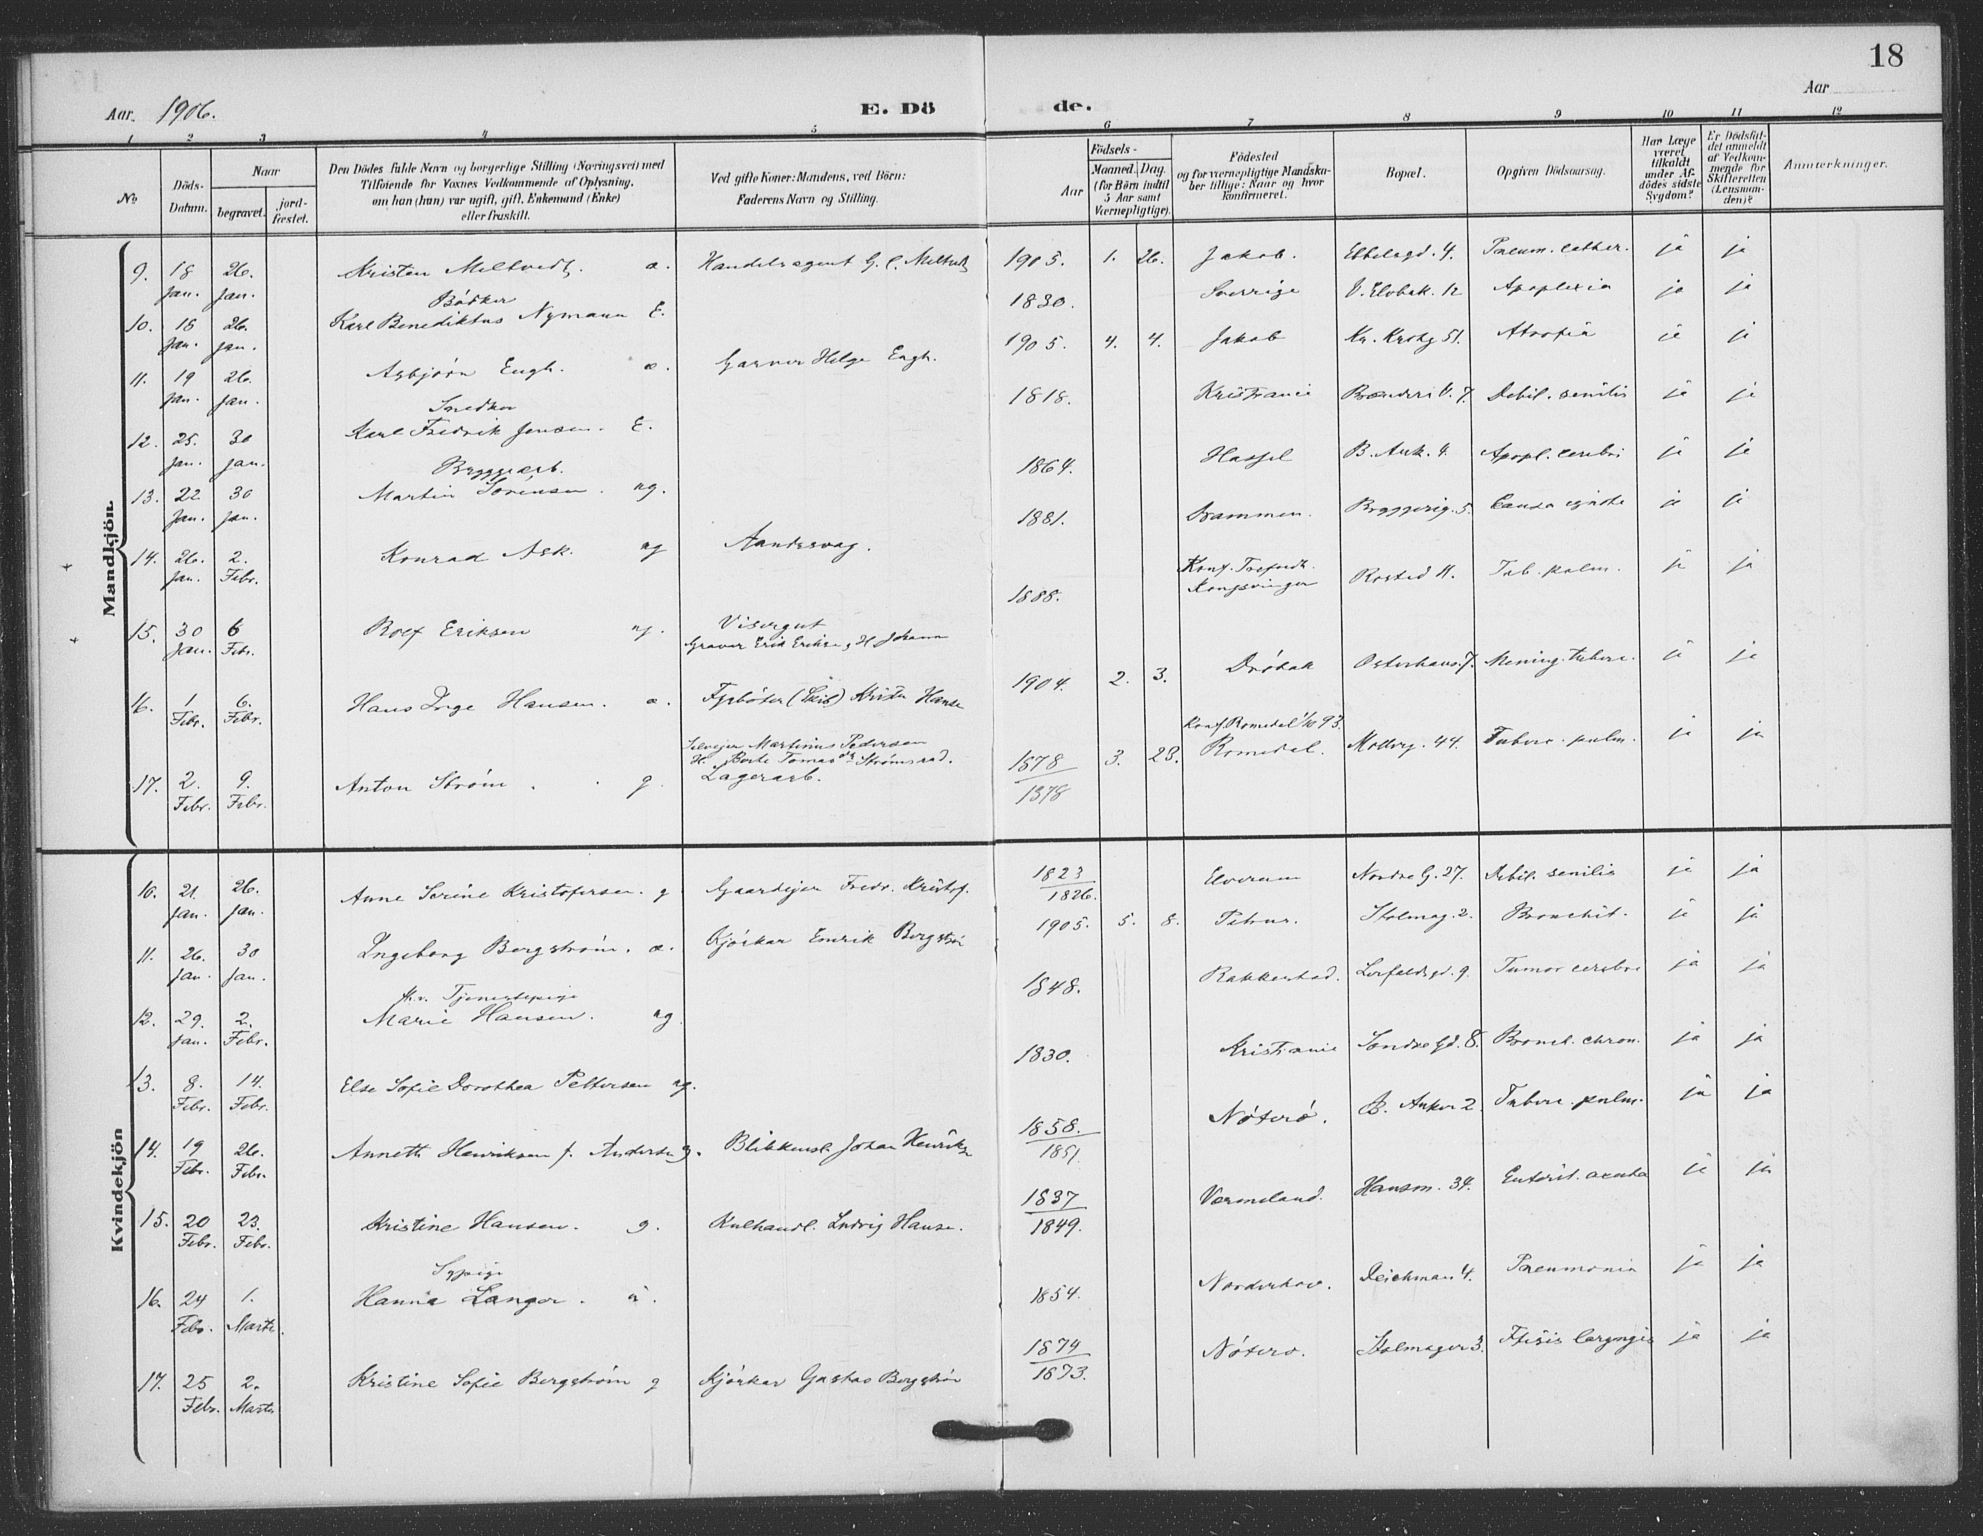 18
Aar. 1906. E. Dö de. Aar
1 2 3 4 5 6 7 8 9 10 11 12
No Döds-Datum. Naar begravet. jord-fæstet.
Den Dödes fulde Navn og borgerlige Stilling (Næringsvei) med Tilföiende for Voxnes Vedkommende af Oplysning, om han (hun) var ugift, gift, Enkemand (Enke) eller fraskilt.
Ved gifte Koner: Mandens, ved Börn: Faderens Navn og Stilling.
Födsels- Aar Maaned. Dag. (for Börn indtil 5 Aar samt Værnepligtige).
Födested og for værnepligtige Mandskaber tillige: Naar og hvor konfirmeret.
Bopæl.
Opgiven Dödsaarsag.
Har Læge været tilkaldt under Afdödes sidste Sygdom?
Er Dödsfaldet anmeldt af Vedkommende for Skifteretten (Lensmanden)?
Anmærkninger.
Mandkjön.
9. 18 Jan. 26. Jan. Kristen Meltvedt. u. Handelsagent G. C. 1905. 1. 26. Jakob. Ebbelsgd. 4. Pneum. cathar. ja ja
10. 16 Jan. 26. Jan. Bödker Karl Benediktus Nymann E. 1830. Sverrige V. Elvbak. 12 Apoplexia ja ja
11. 19 Jan. 26. Jan. Asbjörn Engh. u. Garver Helge Engh. 1905. 4. 4. Jakob Kr. Krohg 51. Atrofia ja ja
12. 25. Jan. 30 Jan. Snedker Karl Fredrik Jensen. E. 1818. Kristiania 7. Debil. senilis ja ja
13. 22 Jan. 30 Jan. Bryggearb. Martin Sörensen. ug. 1864. Hassel B. Ank. 4. Apopl. cerebri ja ja
14. 26. Jan. 2. Febr. Konrad Ask. ug Aandssvag. 1881. Drammen. Bryggerig. 5. Causa ignota ja ja
15. 30 Jan. 6 Febr. Rolf Eriksen ug. Visergut Graver Erik Eriksen, H. Johanna 1888. Konf. Kongsvinger Rosted 11. Tub. pulm. ja ja
16. 1 Febr. 6. Febr. Hans Inge Hansen. u. Fyrböter (Skib) Hanse 1904. 2. 3. Dröbak Osterhaus. 7. Mening. tuberc. ja ja
17. 2. Febr. 9. Febr. Anton Ström. g. Selvejer Martinus Pedersen H. Berte Tomasdr Strömsrad. Lagerarb. 1878 1878 3. 23. Konf. Romedal 1/10 93. Romedal. Motterg. 44. Tuberc. pulm. ja ja
Kvindekjön
10. 21. Jan. 26. Jan. Anne Serine Kristofersen. g Gaardejer Fredr. Kristof. 1823 1826. Elverum Nordre G. 27. Debil. senilis ja ja
11. 26. Jan. 30 Jan. Ingeborg Bergström. u. Kjörkar Emrik Bergström 1905. 5. 8. Petrus. Stolmag. 2. Bronchit. ja ja
12. 29. Jan. 2. Febr. fhv. Tjenestepige Marie Hansen. ug 1848. Rakkestad. Lerfaldsgd. 9. Tumor cerebri ja ja
13. 8. Febr. 14. Febr. Else Sofie Dorothea Pettersen ug. 1830. Kristiania Söndre Gd. 8. Bronch. chron. ja ja
14. 19 Febr. 26. Febr. Anneth Henriksen f. Andersen g. Blikkensl. Johan Henriks 1858. 1851. Nöterö. B. Anker 2. Tuberc. pulm. ja ja
15. 20 Febr. 23. Febr. Kristine Hansen. g. Kulhandl. Ludvig Hanse. 1837 1849. Vermeland. Hausm. 34. Enterit. acuta ja ja
16. 24 Febr. 1. Marts. Sypige Hanna Langer. u. 1854. Norderhov. Deichman 4. Pneumonia ja ja
17. 25 Febr. 2. Marts Kristine Sofie Bergström g Kjörkar Gustav Bergström 1874 1873. Nöterö. Stolmager 3. Ftisis laryngis ja ja